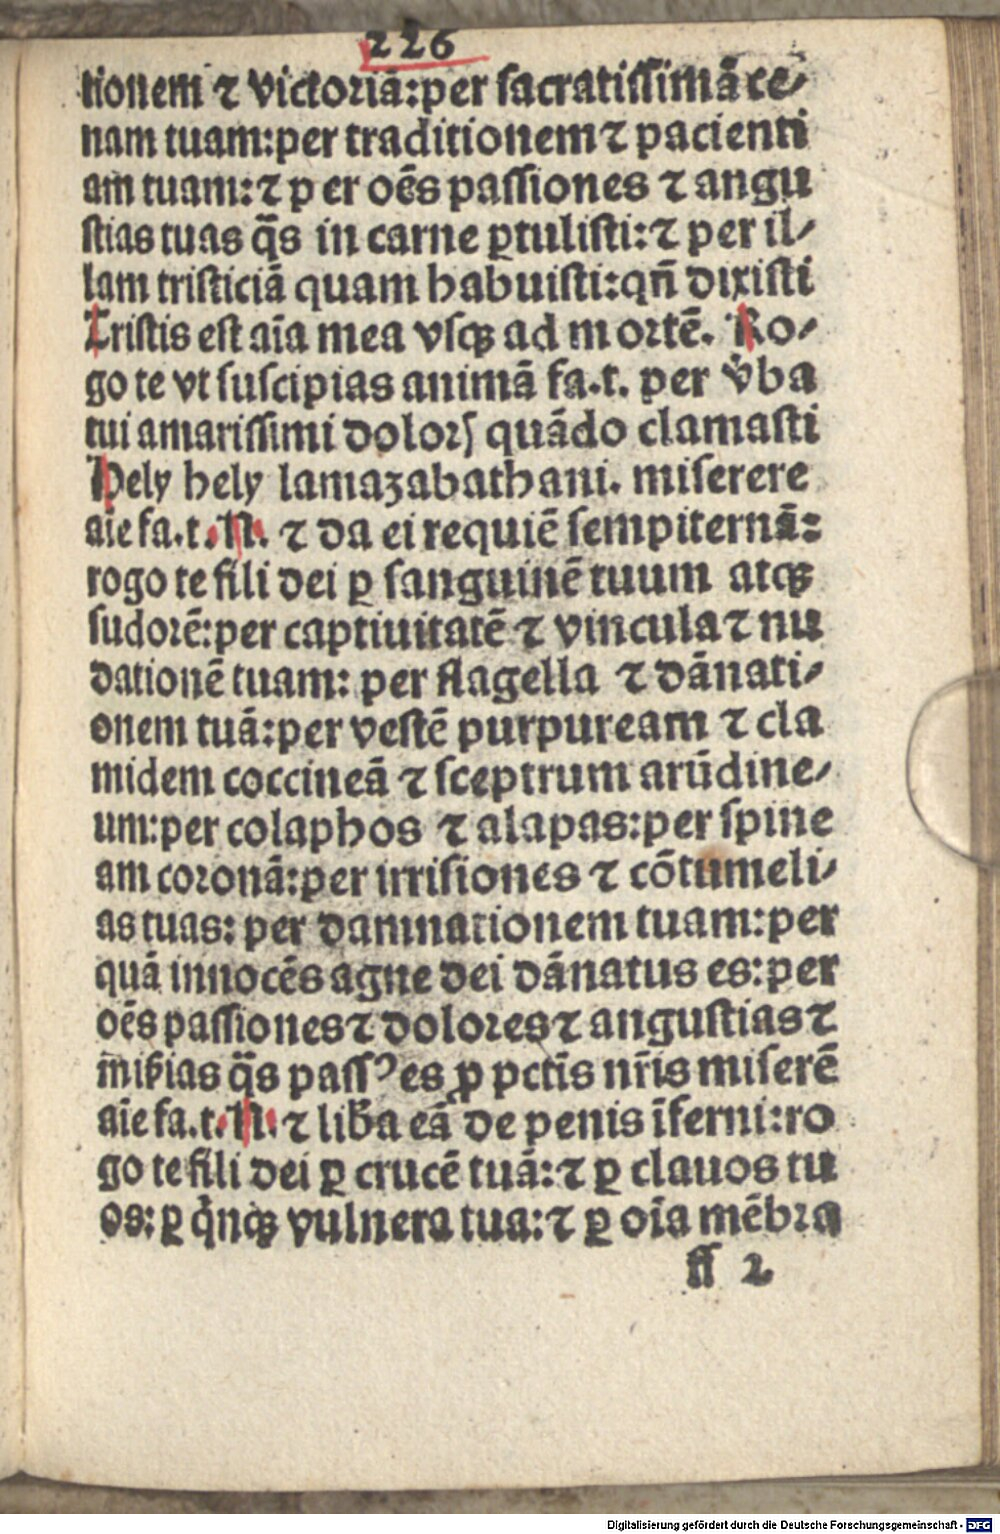 226
tionem ⁊ victoriā:per sacratissimā ce⸗
nam tuam:per traditionem ⁊ pacienti
am tuam:⁊ p er oēs passiones ⁊ angu
stias tuas q̄s in carne ꝑtulisti:⁊ per il⸗
lam tristiciā quam habuisti:qn̄ dixisti
Tristis est aīa mea vsqꝫ ad mortē. Ro⸗
go te vt suscipias animā fa.t. per v̓ba
tui amarissimi dolorꝭ quādo clamasti
Hely hely lamazabathani. miserere
aīe fa.t.N. ⁊ da ei requiē sempiternā:
rogo te fili dei ꝑ sanguinē tuum atqꝫ
sudorē:per captiuitatē ⁊ vincula ⁊ nu
dationē tuam: per flagella ⁊ dānati⸗
onem tuā:per vestē purpuream ⁊ cla
midem coccineā ⁊ sceptrum arūdine⸗
um:per colaphos ⁊ alapas:per spine
am coronā:per irrisiones ⁊ cōtumeli⸗
as tuas: per damnationem tuam:per
quā innocēs agne dei dānatus es:per
oēs passiones ⁊ dolores ⁊ angustias ⁊
mis̄ias q̄s passꝰ es ꝓ pctīs nr̄is miserē
aīe fa.t.N. ⁊ lib̄a eā de penis īferni:ro
go te fili dei ꝑ crucē tuā:⁊ ꝑ clauos tu
os:ꝑ qi̓nqꝫ vulnera tua:⁊ ꝑ oīa mēbra
ff 2
Digitalisierung gefördert durch die Deutsche Forschungsgemeinschaft - DFG